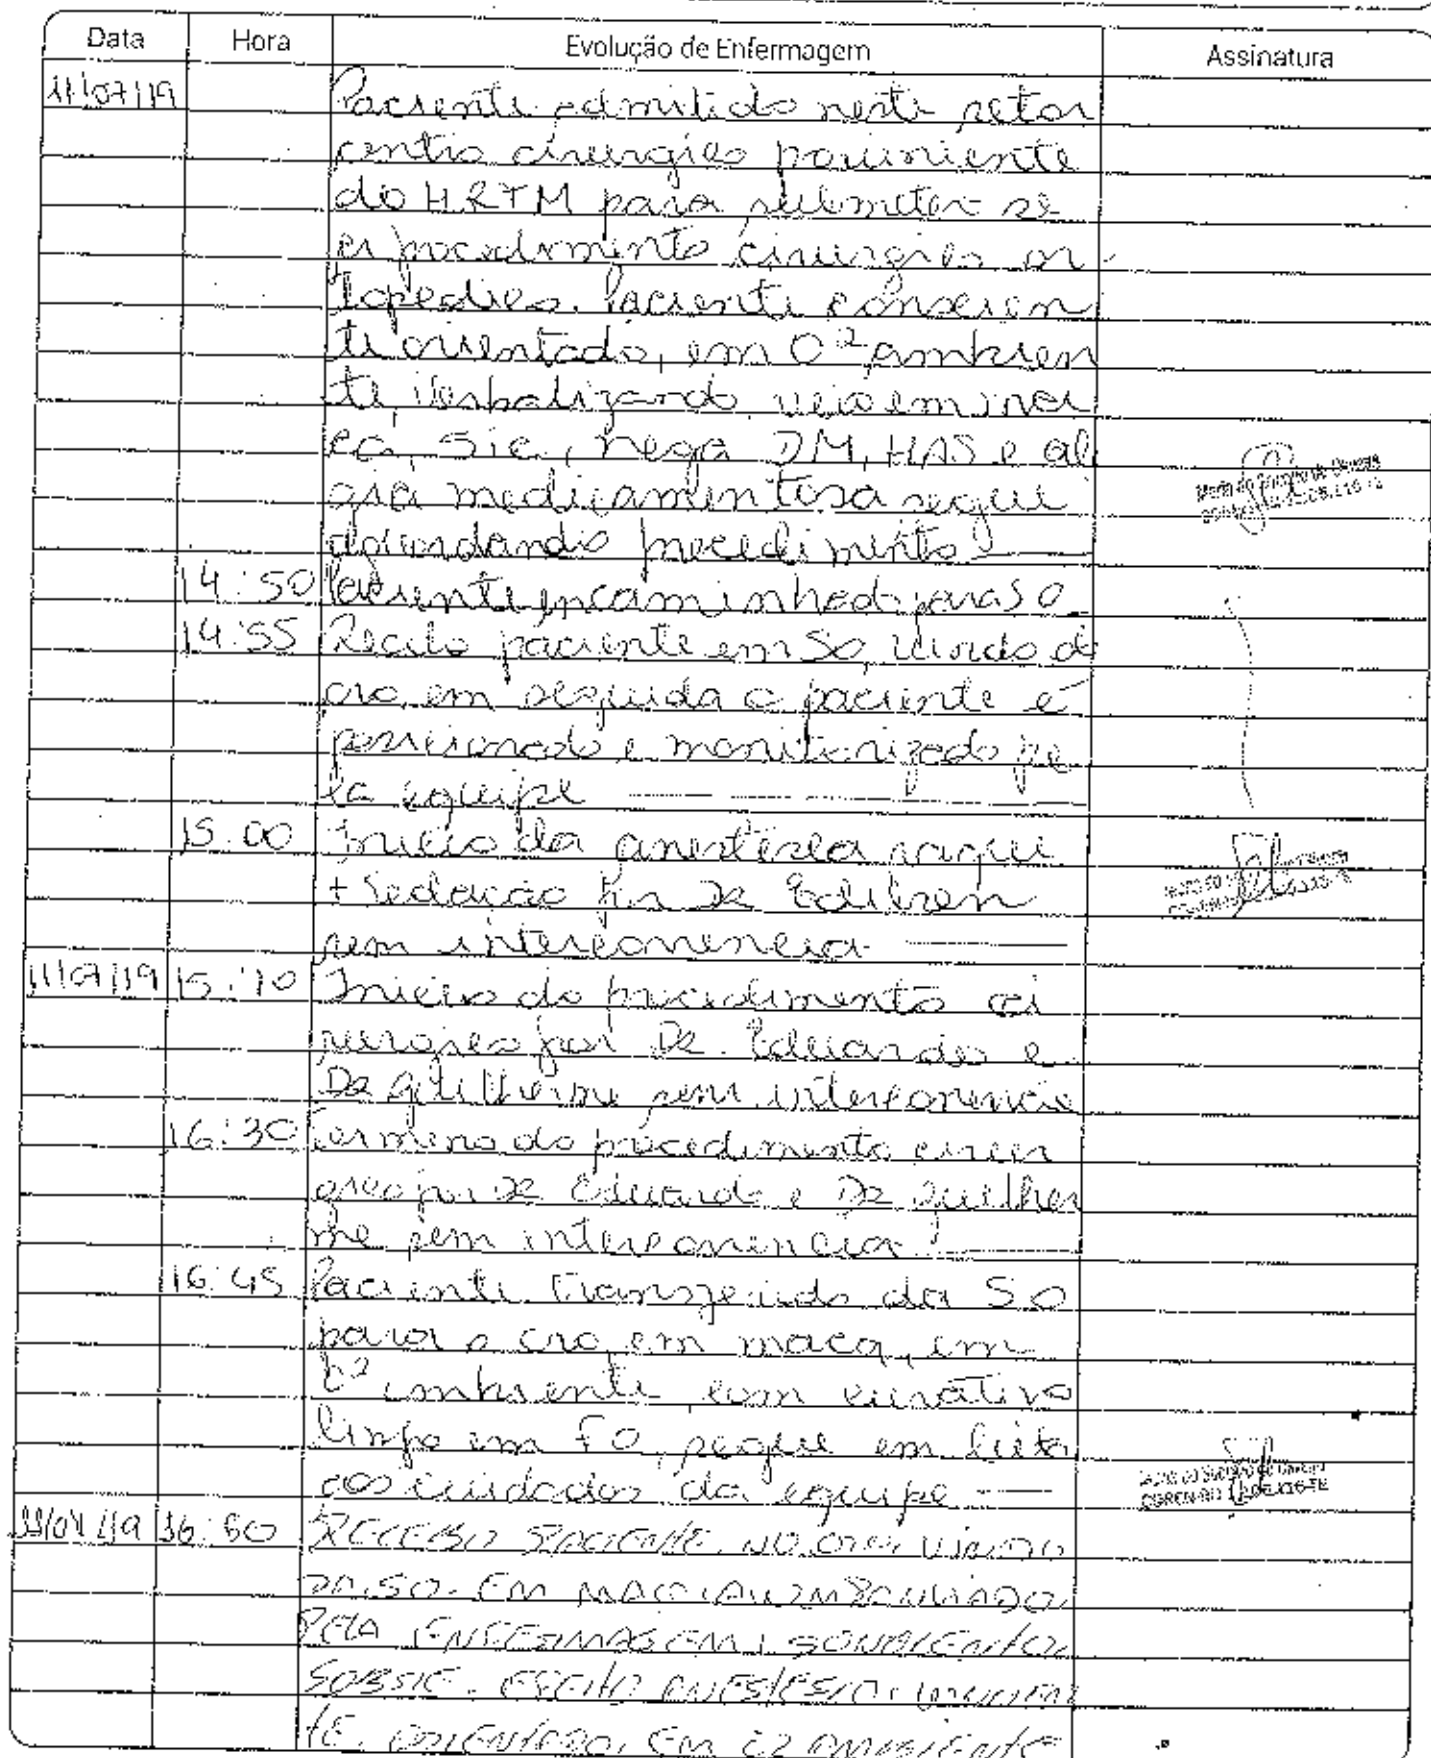 Data Hora Evolução de Enfermagem Assinatura
11/07/19 Paciente admitido neste setor
centro cirurgico
do HRTM para submeter se
a procedimento cirurgico or-
topedico. Paciente conscien
te orientado, em O² ambien
te, verbalizando, veio em ma
ca, sic, nega DM, HAS e al
gia medicamentosa segui
aguardando procedimento
14:50 Paciente encaminhado para SO
14:55 Recebo paciente em SO, vindo do
cro, em seguida o paciente é
posicionado e monitorizado pe
la equipe
15:00 Inicio da anestesia raqui
+ Sedação por Dr
sem intercorrencia
11/07/19 15:10 Inicio do procedimento ci
rurgico por Dr. Eduardo e
Dr Guilherme sem intercorrencia
16:30 Termino do procedimento cirur
gico por Dr Eduardo e Dr Guilher
me sem intercorrencia
16:45 Paciente Transferido da SO
para o cro, em maca, em
O² ambiente, com curativo
limpo em FO, segue em leito
aos cuidados da equipe
11/07/19 16:50 RECEBO PACIENTE NO CRO, VINDO
DA SO. EM MACA
PELA ENFERMAGEM, SONOLENTO,
SOBRE EFEITO ANESTESICO,
TE, ORIENTADO, EM O2 AMBIENTE